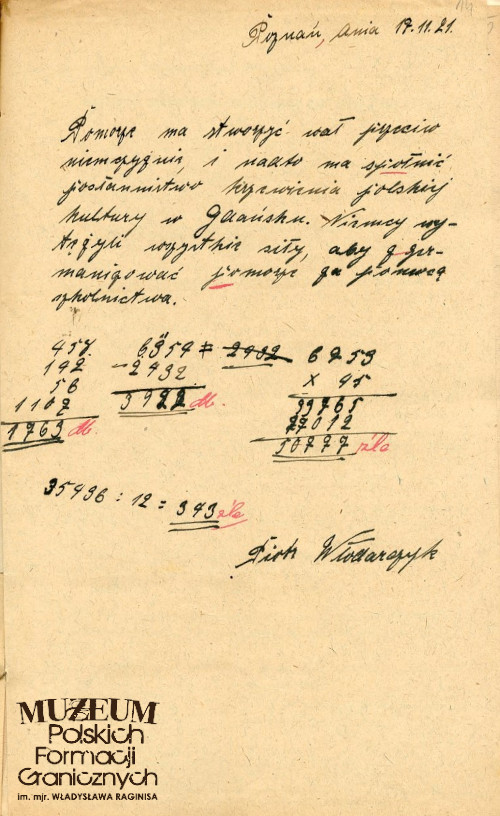 Poznań, dnia 17.11.21.
Pomorze ma stworzyć wał przeciw
niemczyźnie i nadto ma spiołnić
posłannictwo krzewienia polskiej
kultury w Gdańsku. Niemcy wy-
tężyli wszystkie siły, aby zger-
manizować pomorze za pomocą
szkolnictwa.
457.
142
56
1107
1763 db.
6354 = 2432
- 2432
3922 db.
6753
X 45
33765
27012
50777 źle
35436 : 12 = 343 źle
Piotr Włodarczyk
MUZEUM
Polskich
Formacji
Granicznych
im. mjr. WŁADYSŁAWA RAGINISA